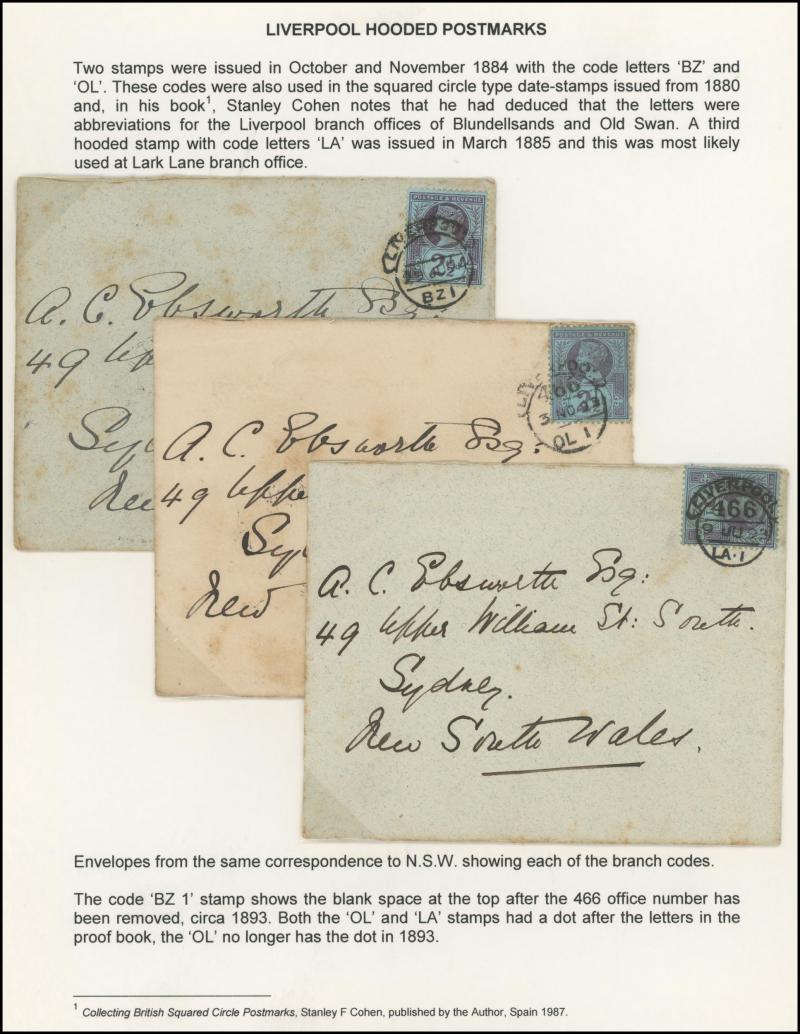 LIVERPOOL HOODED POSTMARKS
Two stamps were issued in October and November 1884 with the code letters ‘BZ’ and
‘OL’. These codes were also used in the squared circle type date-stamps issued from 1880
and, in his book1, Stanley Cohen notes that he had deduced that the letters were
abbreviations for the Liverpool branch offices of Blundellsands and Old Swan. A third
hooded stamp with code letters ‘LA’ was issued in March 1885 and this was most likely
used at Lark Lane branch office.
POSTAGE & REVENUE
LIVERPOOL
BZ 1
A. C. Ebsworth Esq.
49 Upp
Syd
New
POSTAGE & REVENUE
LIVERPOO
466
3 NO 93
OL 1
A. C. Ebsworth Esq:
49 Uppe
Syd
New
LIVERPOOL
466
LA·1
A. C. Ebsworth Esq:
49 Upper William St: South.
Sydney.
New South Wales.
Envelopes from the same correspondence to N.S.W. showing each of the branch codes.
The code ‘BZ 1’ stamp shows the blank space at the top after the 466 office number has
been removed, circa 1893. Both the ‘OL’ and ‘LA’ stamps had a dot after the letters in the
proof book, the ‘OL’ no longer has the dot in 1893.
1 Collecting British Squared Circle Postmarks, Stanley F Cohen, published by the Author, Spain 1987.